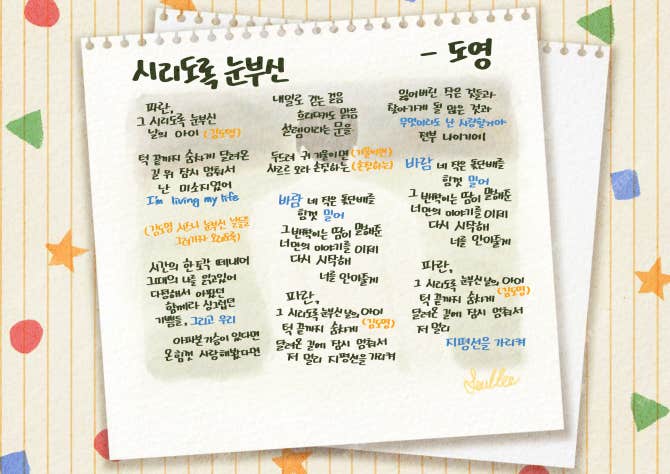 시리도록 눈부신 - 도영
파란,
그 시리도록 눈부신
날의 아이 (김도영)
턱 끝까지 숨차게 달려온
길 위 잠시 멈춰서
난 미소지었어
I'm living my life
(김도영 시즈니 눈부신 날들을
그려가자 오래도록)
시간의 한 조각 떼내어
그때의 나를 읽고있어
다정해서 아팠던
함께라 싱그럽던
기쁨들, 그리고 우리
아파본 가슴이 있다면
온 힘껏 사랑해봤다면
내일로 걷는 걸음
흐려지기도 맑음
설렘이라는 문을
두드려 귀 기울이면 (기울이면)
사르르 오라 손짓하는 (손짓하는)
바람 네 작은 돛단배를
힘껏 밀어
그 반짝이는 땀이 말해준
너만의 이야기를 이제
다시 시작해
너를 안아줄게
파란,
그 시리도록 눈부신 날의 아이
턱 끝까지 숨차게 (김도영)
달려온 길에 잠시 멈춰서
저 멀리 지평선을 가리켜
잃어버린 작은 것들과
찾아가게 될 많은 것과
무엇이라도 난 사랑할거야
전부 나이기에
바람 네 작은 돛단배를
힘껏 밀어
그 반짝이는 땀이 말해준
너만의 이야기를 이제
다시 시작해
너를 안아줄게
파란,
그 시리도록 눈부신 날의 아이
턱 끝까지 숨차게 (김도영)
달려온 길에 잠시 멈춰서
저 멀리
지평선을 가리켜